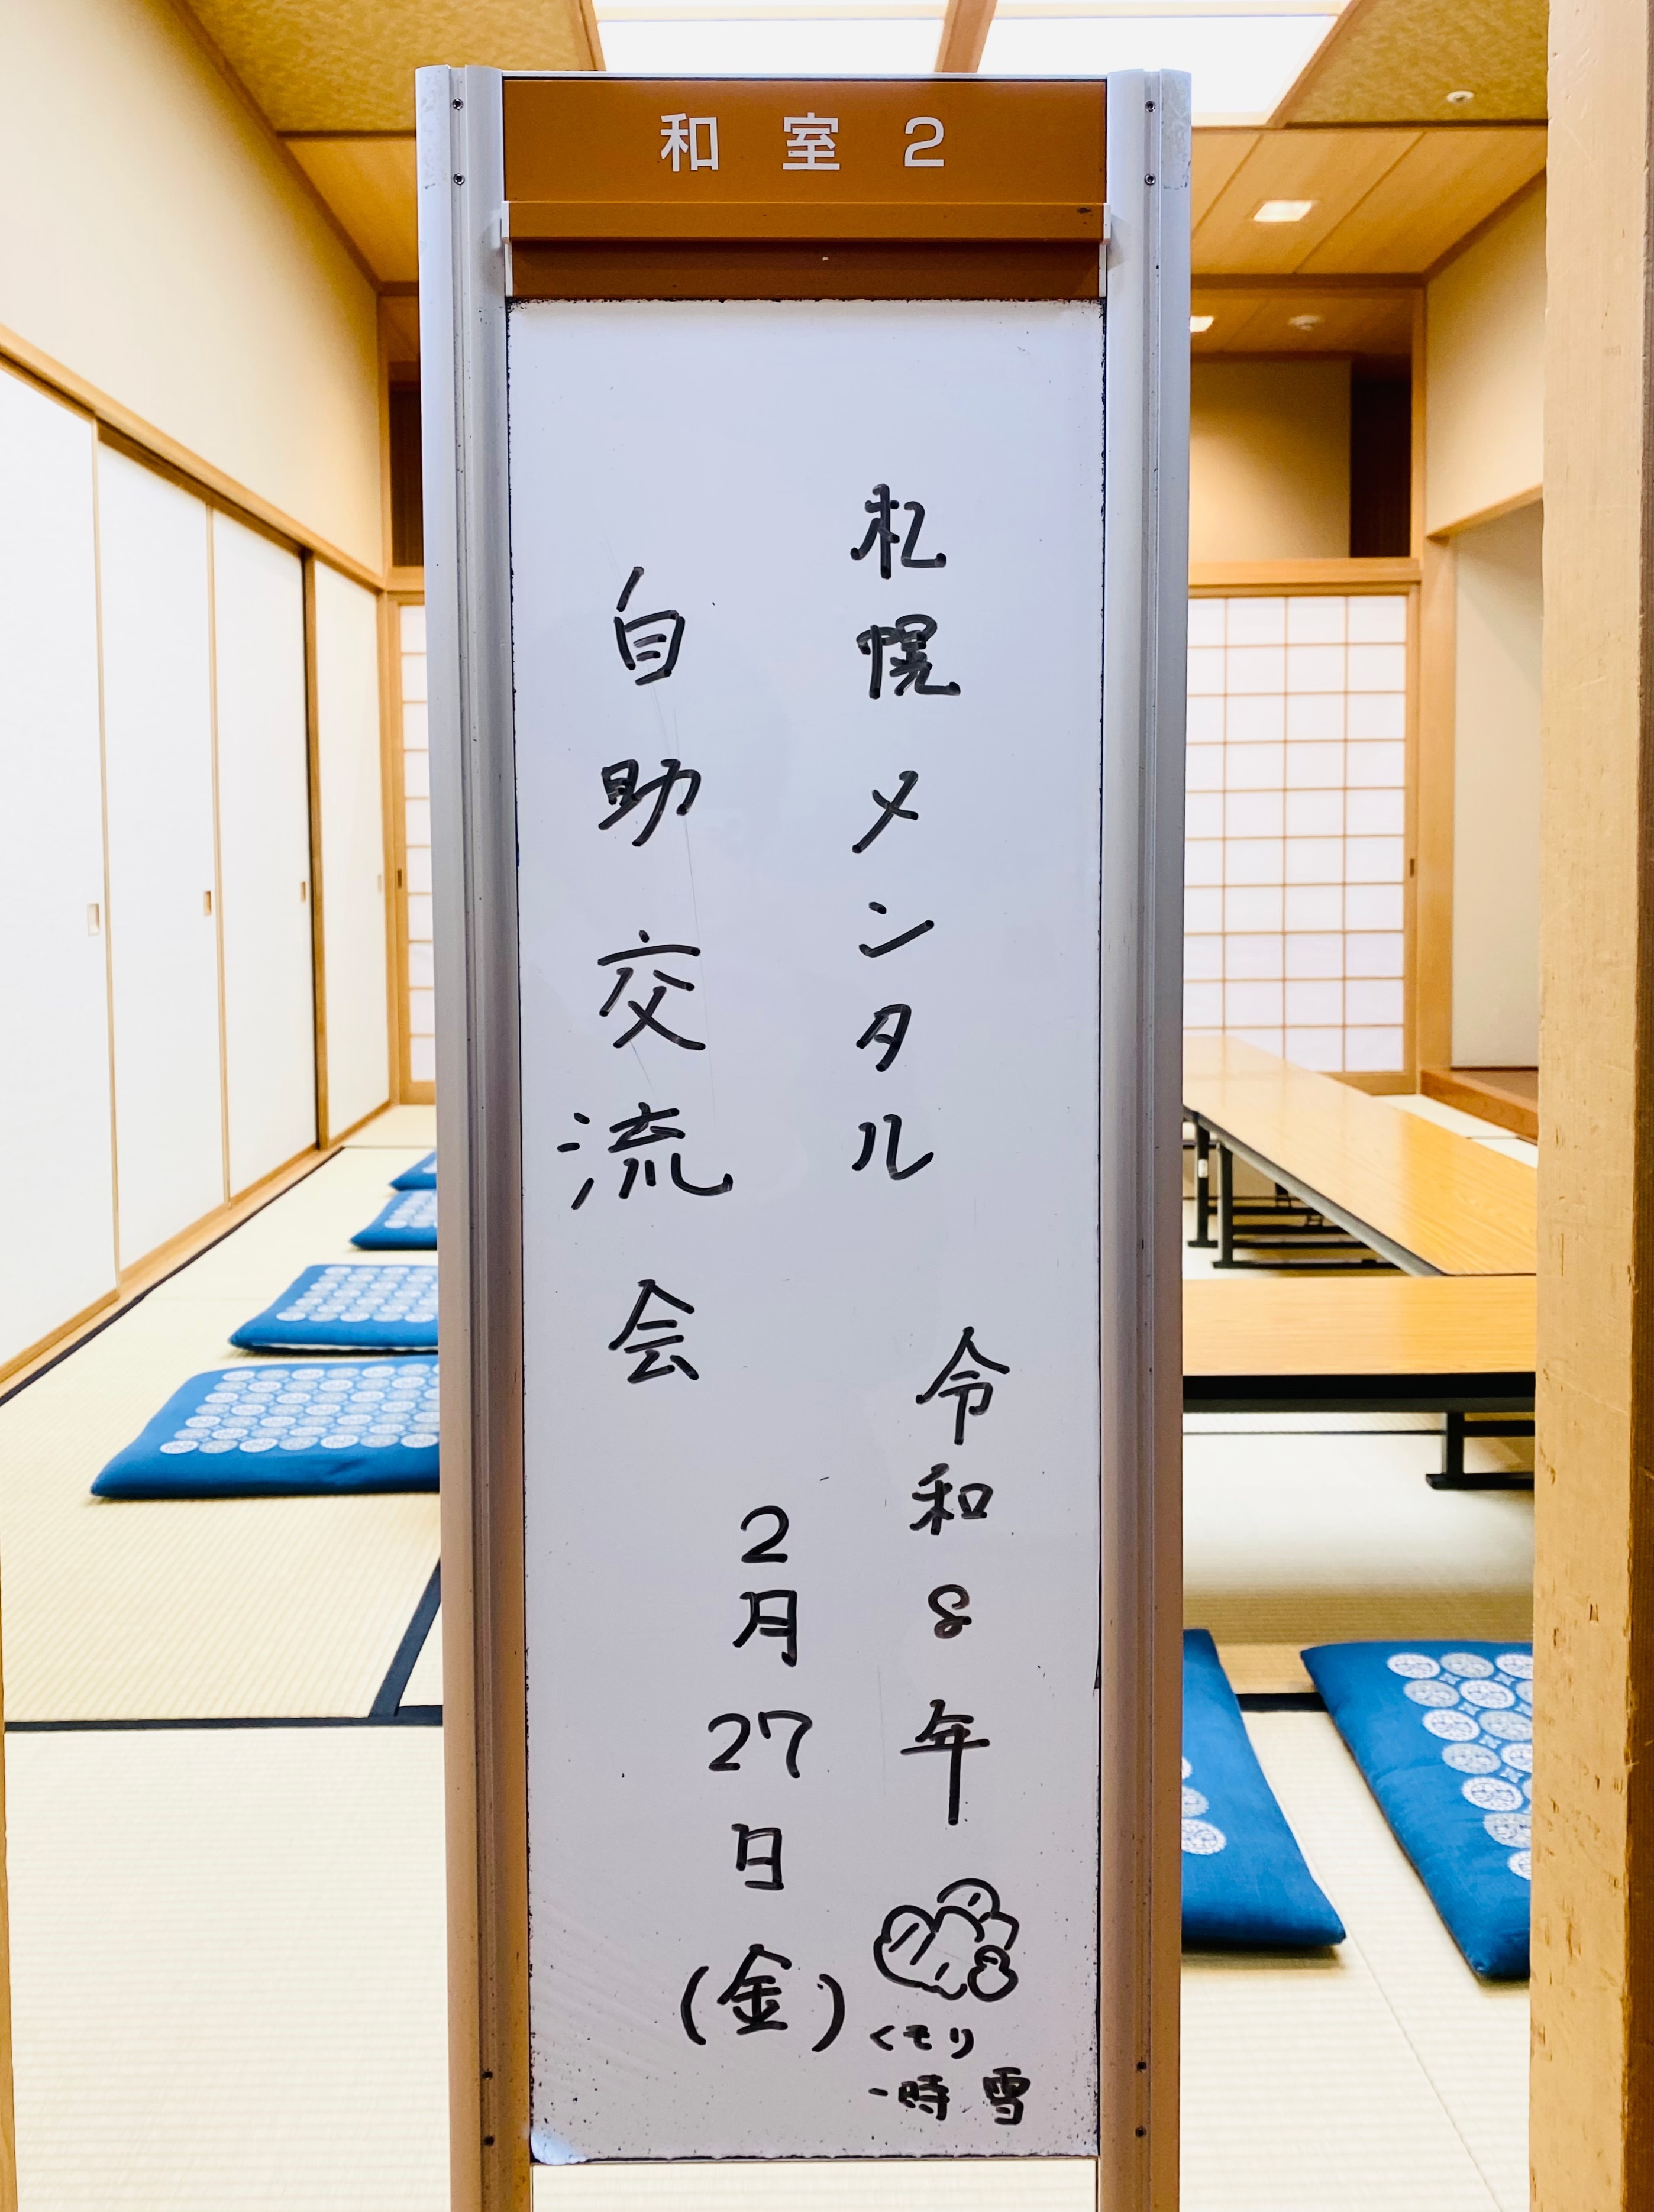 和室2
札幌メンタル
自助交流会
令和8年
2月27日(金)
くもり
一時雪